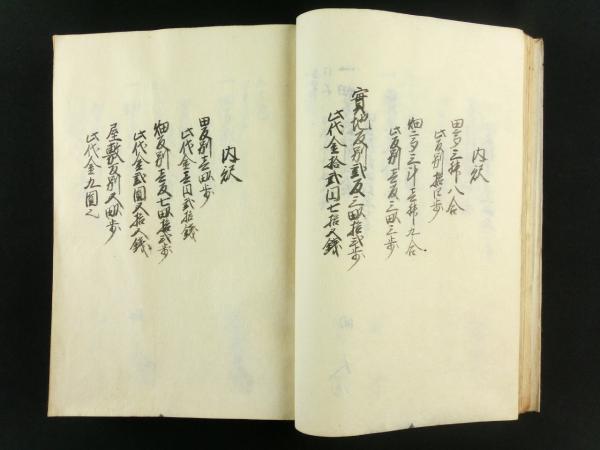 内訳
田高三舛八合
此反別拾四歩
畑高三斗壱舛九合
此反別壱反三畝三歩
實地反別弐反三畝拾弐歩
此代金拾弐円七拾八銭
内訳
田反別壱畝歩
此代金壱円弐拾銭
畑反別壱反七畝拾弐歩
此代金弐圓五拾八銭
屋敷反別五畝歩
此代金九圓也